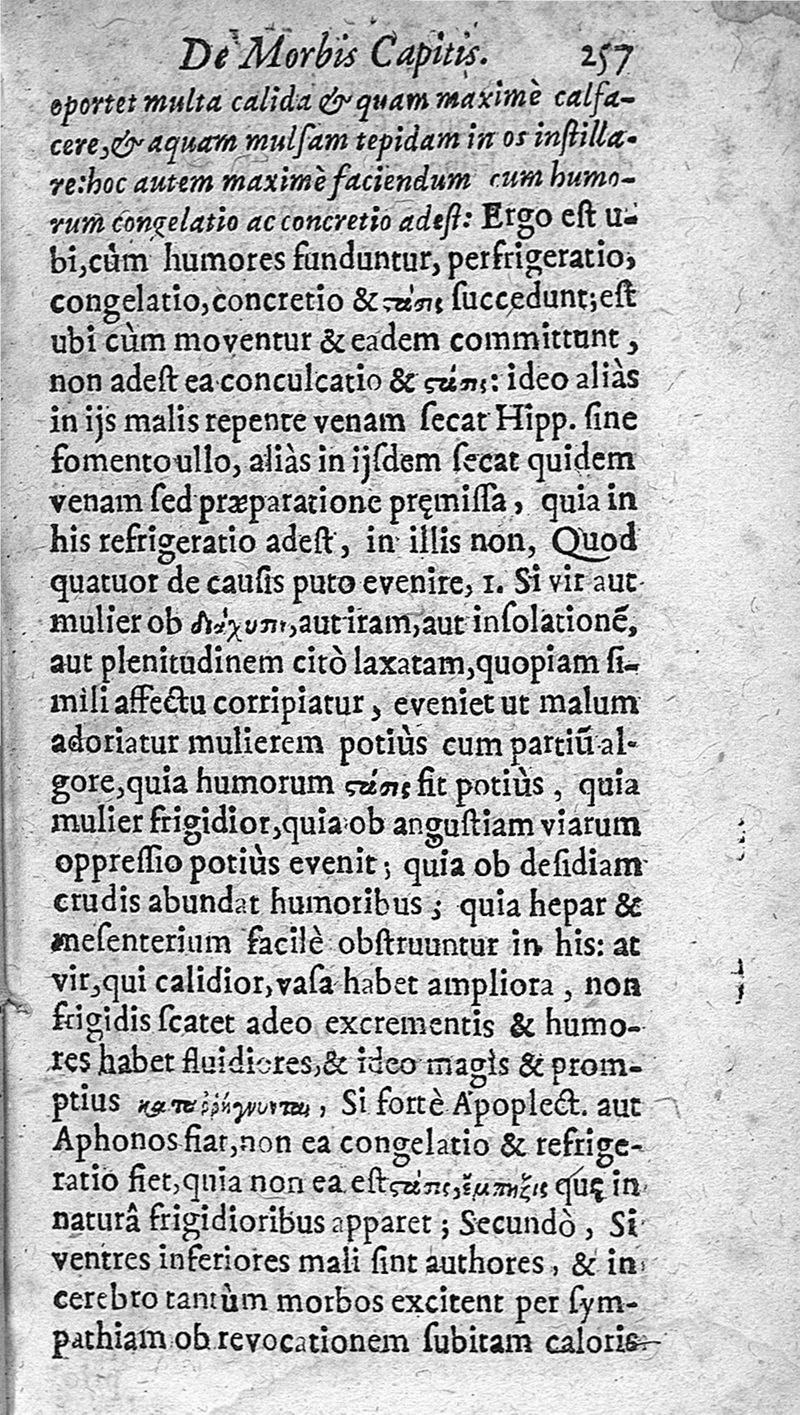 De Morbis Capitis. 257
oportet multa calida & quam maximè calfa-
cere, & aquam mulſam tepidam in os inſtilla-
re: hoc autem maximè faciendum cum humo-
rum congelatio ac concretio adeſt: Ergo eſt u-
bi, cùm humores funduntur, perfrigeratio,
congelatio, concretio & ςάσις ſuccedunt; eſt
ubi cùm moventur & eadem committunt,
non adeſt ea conculcatio & ςάσις: ideo aliàs
in ijs malis repente venam ſecat Hipp. ſine
fomento ullo, aliàs in ijſdem ſecat quidem
venam ſed præparatione pręmiſſa, quia in
his refrigeratio adeſt, in illis non, Quod
quatuor de cauſis puto evenire, 1. Si vir aut
mulier ob aut iram, aut inſolationẽ,
aut plenitudinem citò laxatam, quopiam ſi-
mili affectu corripiatur, eveniet ut malum
adoriatur mulierem potiùs cum partiũ al-
gore, quia humorum ςάσις fit potiùs, quia
mulier frigidior, quia ob anguſtiam viarum
oppreſſio potiùs evenit; quia ob deſidiam
crudis abundat humoribus; quia hepar &
meſenterium facilè obſtruuntur in his: at
vir, qui calidior, vaſa habet ampliora, non
frigidis ſcatet adeo excrementis & humo-
res habet fluidiores, & ideo magis & prom-
ptius καταῤῥήγνυνται, Si fortè Apoplect. aut
Aphonos fiat, non ea congelatio & refrige-
ratio fiet, quia non ea eſt ςάσις, ἔμπηξις quę in
naturâ frigidioribus apparet; Secundò, Si
ventres inferiores mali ſint authores, & in
cerebro tantùm morbos excitent per ſym-
pathiam ob revocationem ſubitam caloris